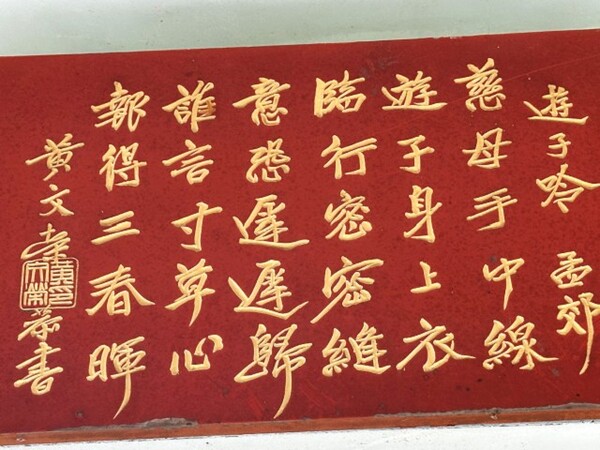 遊子吟 孟郊
慈母手中線
遊子身上衣
臨行密密縫
意恐遲遲歸
誰言寸草心
報得三春暉
黃文榮恭書